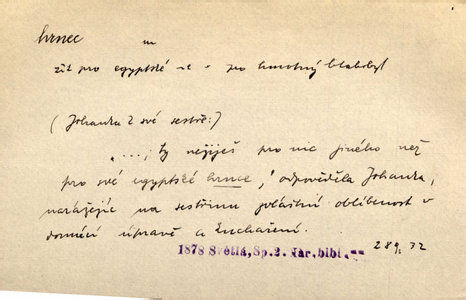 hrnec m
žít pro egyptské -e = pro hmotný blahobyt
(Johanka z své sestře:)
"...; ty nežiješ pro nic jiného než
pro své egyptské hrnce," odpověděla Johanka,
narážejíc na sestřinu zvláštní oblíbenost v
domácí úpravě a kuchaření.
1878 Světlá, Sp.2. Nár.bibl. 32